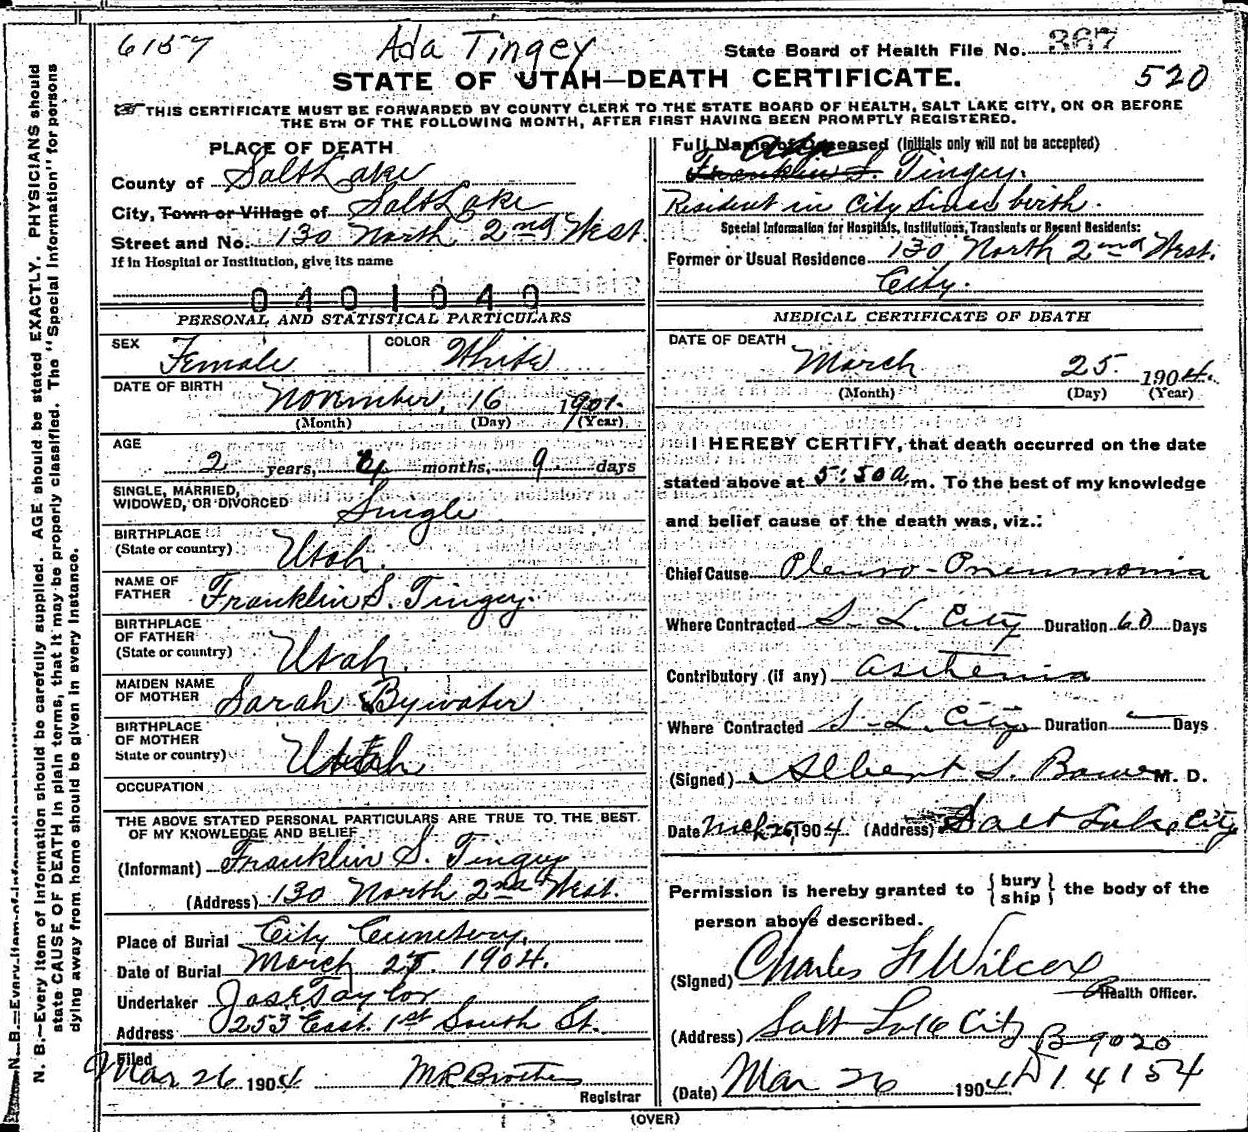 6157 Ada Tingey State Board of Health File No. 367
STATE OF UTAH—DEATH CERTIFICATE. 520
THIS CERTIFICATE MUST BE FORWARDED BY COUNTY CLERK TO THE STATE BOARD OF HEALTH, SALT LAKE CITY, ON OR BEFORE
THE 5TH OF THE FOLLOWING MONTH, AFTER FIRST HAVING BEEN PROMPTLY REGISTERED.
PLACE OF DEATH
County of Salt Lake
City, Town or Village of Salt Lake
Street and No. 130 North 2nd West.
If in Hospital or Institution, give its name
0401040
PERSONAL AND STATISTICAL PARTICULARS
SEX Female COLOR White
DATE OF BIRTH November, 16 1901.
(Month) (Day) (Year)
AGE
2 years, 4 months, 9 days
SINGLE, MARRIED,
WIDOWED, OR DIVORCED Single
BIRTHPLACE
(State or country) Utah.
NAME OF
FATHER Franklin S. Tingey.
BIRTHPLACE
OF FATHER
(State or country) Utah.
MAIDEN NAME
OF MOTHER Sarah Bywater
BIRTHPLACE
OF MOTHER
State or country) Utah
OCCUPATION
THE ABOVE STATED PERSONAL PARTICULARS ARE TRUE TO THE BEST
OF MY KNOWLEDGE AND BELIEF
(Informant) Franklin S. Tingey
(Address) 130 North 2nd West.
Place of Burial City Cemetery.
Date of Burial March 25. 1904.
Undertaker Jos E Taylor
Address 253 East 1st South St.
Filed
Mar 26 1904 M R Brothers
Registrar
Full Name of Deceased (Initials only will not be accepted)
Ada
Franklin S. Tingey.
Resident in City Since birth.
Special Information for Hospitals, Institutions, Transients or Recent Residents:
Former or Usual Residence 130 North 2nd West.
City.
MEDICAL CERTIFICATE OF DEATH
DATE OF DEATH
March 25. 1904.
(Month) (Day) (Year)
I HEREBY CERTIFY, that death occurred on the date
stated above at 5:50 a. m. To the best of my knowledge
and belief cause of the death was, viz.:
Chief Cause Pleuro-Pneumonia
Where Contracted S. L. City Duration 60 Days
Contributory (if any) asthenia
Where Contracted S. L. City Duration — Days
(Signed) Albert S. Bower M. D.
Date Mch 25, 1904. (Address) Salt Lake City
Permission is hereby granted to { bury
ship } the body of the
person above described.
(Signed) Charles F Wilcox
Health Officer.
(Address) Salt Lake City B-9020
(Date) Mar 26 1904. D1.4154
(OVER)
N. B.—Every item of information should be carefully supplied. AGE should be stated EXACTLY. PHYSICIANS should
state CAUSE OF DEATH in plain terms, that it may be properly classified. The "Special Information" for persons
dying away from home should be given in every instance.